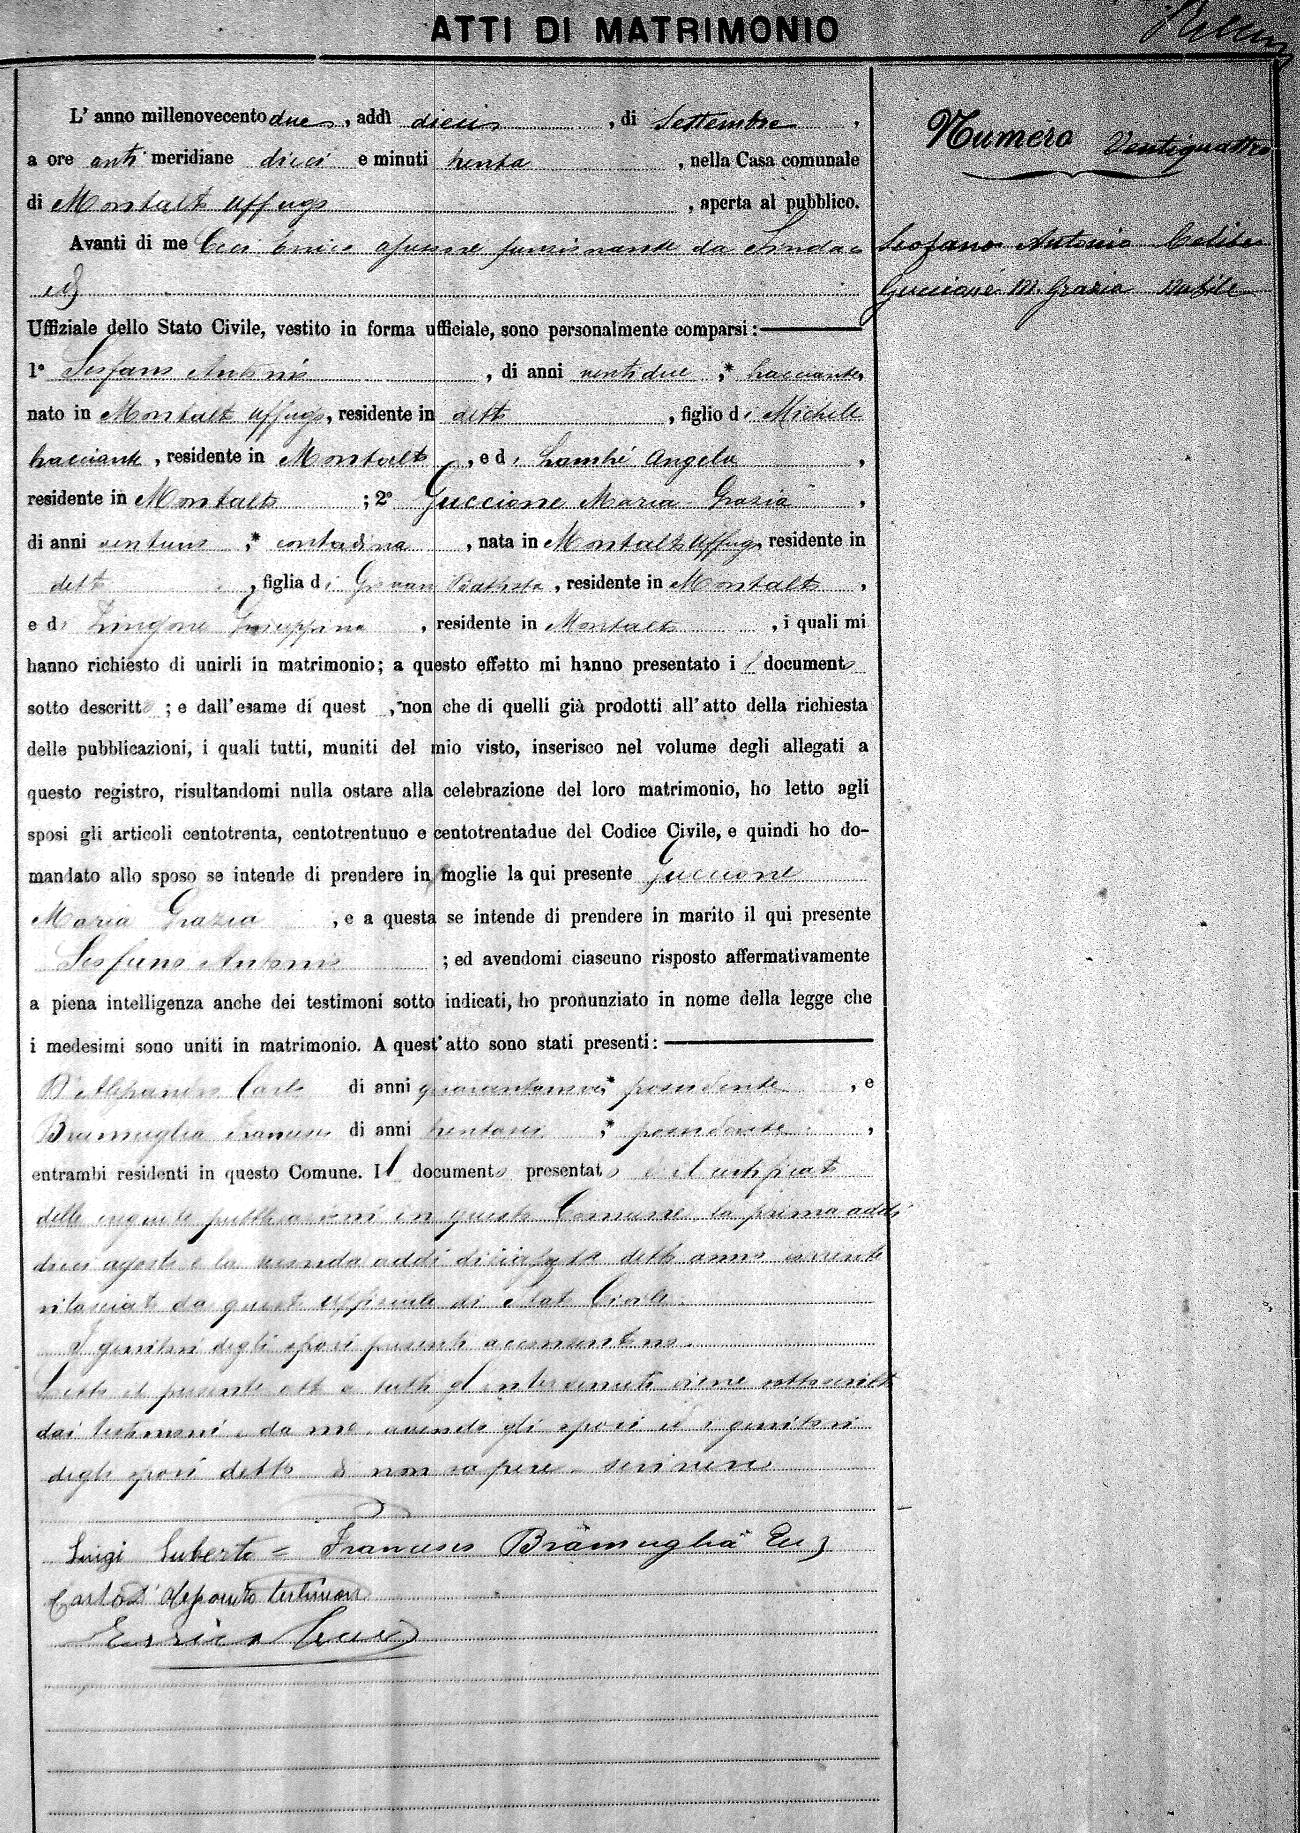 ATTI DI MATRIMONIO
L' anno millenovecento due, addì dieci, di Settembre,
a ore anti meridiane dieci e minuti trenta, nella Casa comunale
di Montalto Uffugo, aperta al pubblico.
Avanti di me Enrico assessore funzionante da Sindaco
ed
Uffiziale dello Stato Civile, vestito in forma ufficiale, sono personalmente comparsi:
1° Antonio, di anni ventidue,* bracciante,
nato in Montalto Uffugo, residente in detto, figlio di Michele
bracciante, residente in Montalto, e di Angela,
residente in Montalto; 2° Guccione Maria Grazia,
di anni ventuno,* contadina, nata in Montalto Uffugo, residente in
detto, figlia di Giovan Battista, residente in Montalto,
e di Zingone Giuseppina, residente in Montalto, i quali mi
hanno richiesto di unirli in matrimonio; a questo effetto mi hanno presentato il documento
sotto descritto; e dall'esame di quest, non che di quelli già prodotti all'atto della richiesta
delle pubblicazioni, i quali tutti, muniti del mio visto, inserisco nel volume degli allegati a
questo registro, risultandomi nulla ostare alla celebrazione del loro matrimonio, ho letto agli
sposi gli articoli centotrenta, centotrentuno e centotrentadue del Codice Civile, e quindi ho do-
mandato allo sposo se intende di prendere in moglie la qui presente Guccione
Maria Grazia, e a questa se intende di prendere in marito il qui presente
Antonio; ed avendomi ciascuno risposto affermativamente
a piena intelligenza anche dei testimoni sotto indicati, ho pronunziato in nome della legge che
i medesimi sono uniti in matrimonio. A quest'atto sono stati presenti:
Carlo di anni quarantanove,* possidente, e
Bramuglia Francesco di anni trentasei,* possidente,
entrambi residenti in questo Comune. Il documento presentato è il certificato
delle eseguite pubblicazioni in questo Comune la prima addì
dieci agosto e la seconda addì diciassette detto anno corrente
rilasciato da quest' Ufficiale di Stato Civile.
I genitori degli sposi presenti acconsentono.
Letto il presente atto a tutti gl'intervenuti viene sottoscritto
dai testimoni e da me avendo gli sposi ed i genitori
degli sposi detto di non sapere scrivere
Luigi Luberto = Francesco Bramuglia
Carlo testimone
Enrico
Numero Ventiquattro
Antonio Celibe
Guccione M. Grazia Nubile